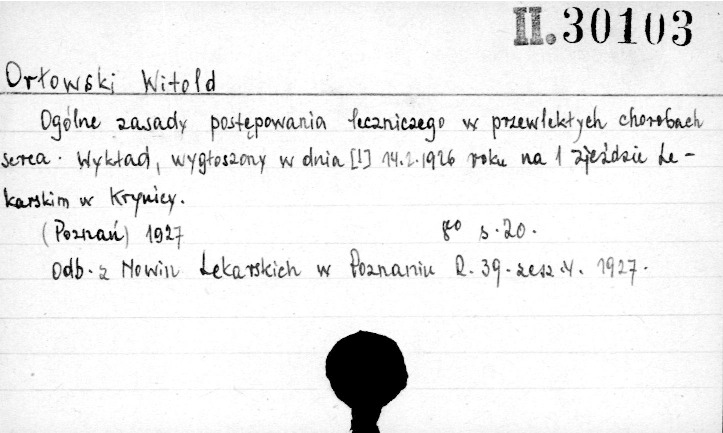 II.30103
Orłowski Witold
Ogólne zasady postępowania leczniczego w przewlekłych chorobach
serca. Wykład, wygłoszony w dnia [!] 14.2.1926 roku na 1 zjeździe Le-
karskim w Krynicy.
(Poznań) 1927 8º s. 20.
Odb. z Nowin Lekarskich w Poznaniu R. 39. zesz. 4. 1927.